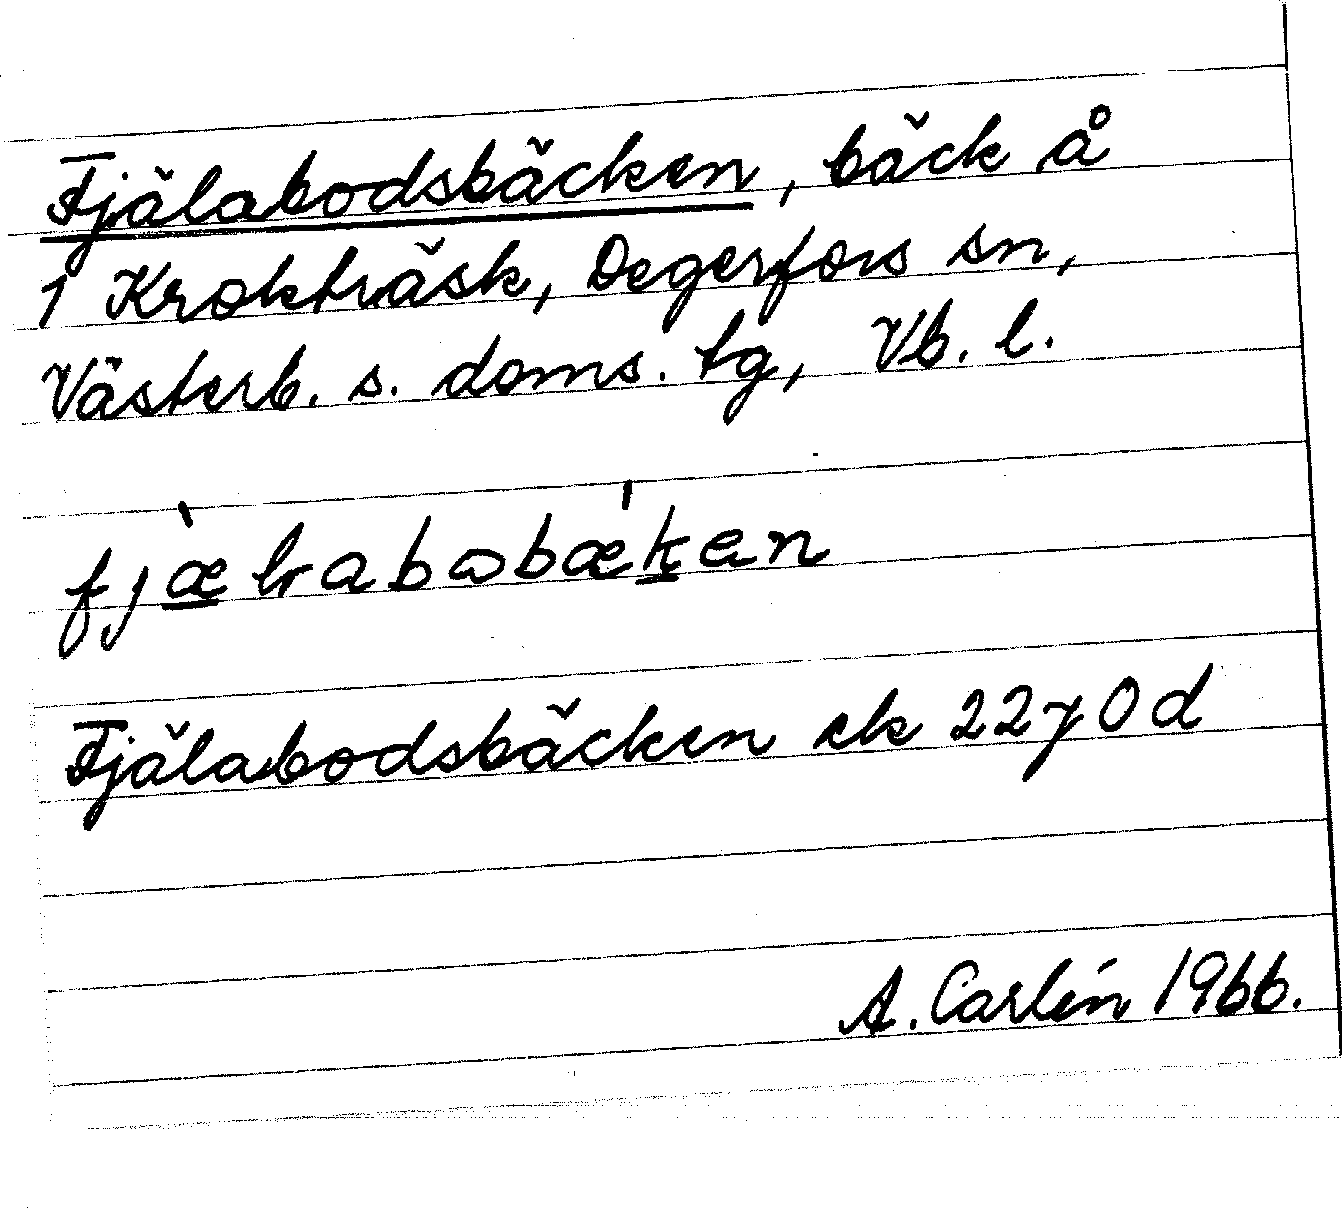 Fjälabodsbäcken, bäck å
1 Krokträsk, Degerfors sn,
Västerb. s. doms. tg, Vb. l.
Fjälabodsbäcken ek 22 7 0 d
A. Carlén 1966.